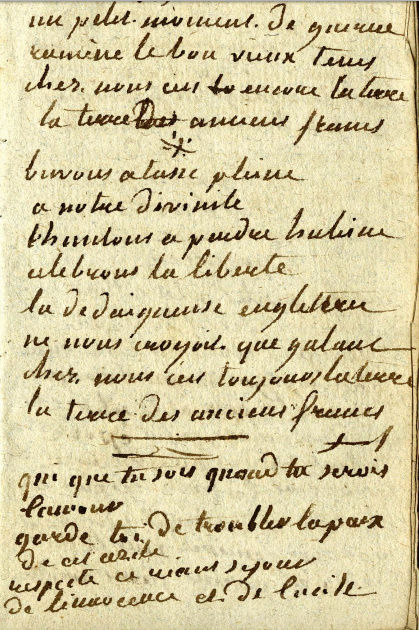 un petit moment de guerre
ramène le bon vieux tems
chez nous ces encore la terre
la terre des anciens francs
buvons a tasse pleine
a notre divinite
Chantons a perdre haleine
celebrons la liberte
la dedaigneuse engleterre
ne nous croyoit que galant
chez nous ces toujours la terre
la terre des anciens francs
qui que tu sois quand tu serois
l'amour
garde toi de troubler la paix
de cet azile
respecte ce riant sejour
de l'innocence et de lucile